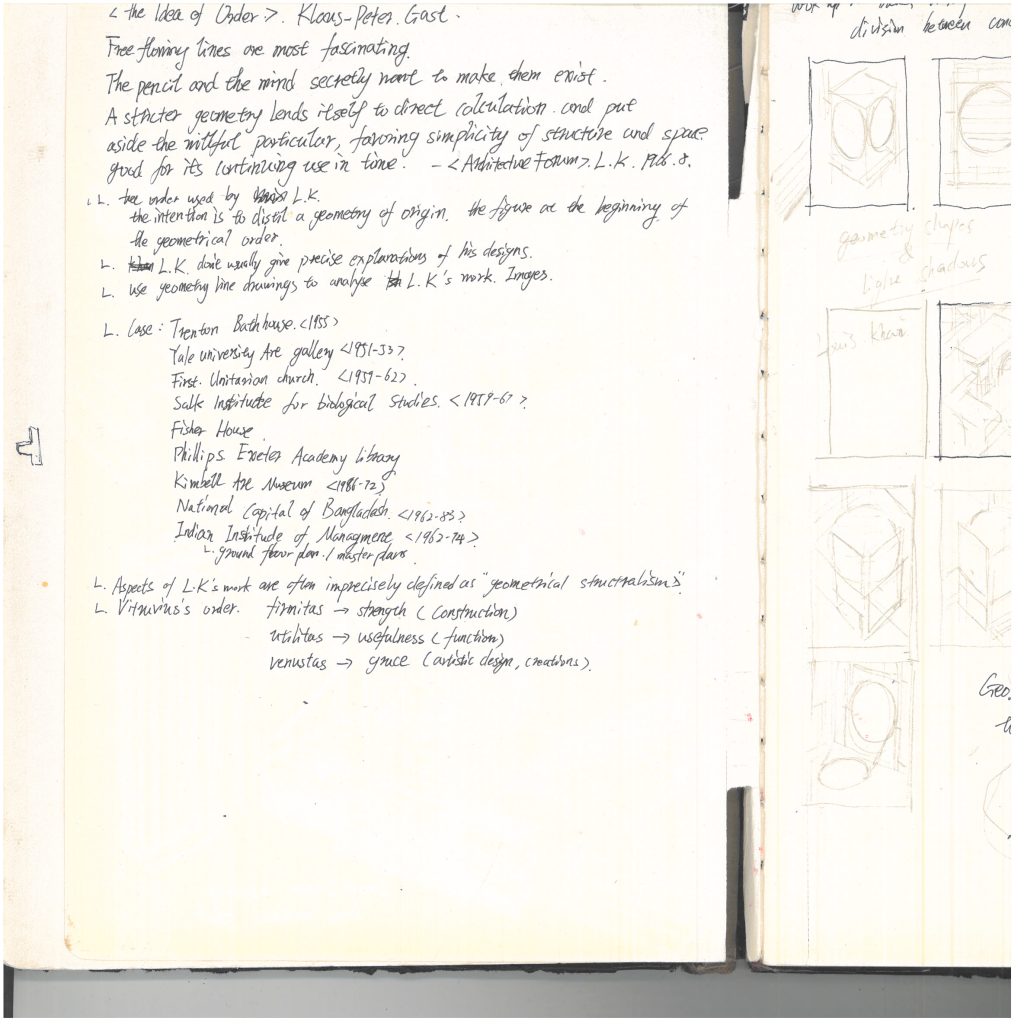 < the Idea of Order >. Klaus-Peter. Gast.
Free flowing lines are most fascinating.
The pencil and the mind secretly want to make them exist.
A stricter geometry lends itself to direct calculation and put
aside the willful particular, favoring simplicity of structure and space.
good for its continuing use in time. - <Architecture Forum>. L.K. 1966.8.
L. the order used by L.K.
the intention is to distil a geometry of origin. the figure at the beginning of
the geometrical order.
L. L.K. don't usually give precise explanations of his designs.
L. use geometry line drawings to analyse L.K's work. Images.
L. Case: Trenton Bathhouse. <1955>
Yale university Art gallery <1951-53>.
First. Unitarian church. <1959-62>.
Salk Institute for biological Studies. <1959-67>.
Fisher House.
Phillips Exeter Academy library
Kimbell Art Museum <1966-72>
National Capital of Bangladash. <1962-83>.
Indian Institude of Managment <1962-74>
L. ground floor plan. / master plans
L. Aspects of L.K's work are often imprecisely defined as "geometrical structralism".
L. Vitruvius's order. firmitas → strength (Construction)
utilitas → usefulness (function)
venustas → grace (artistic design, creations).
division between
geometry shapes
light shadows
Louis Khan
Geo.